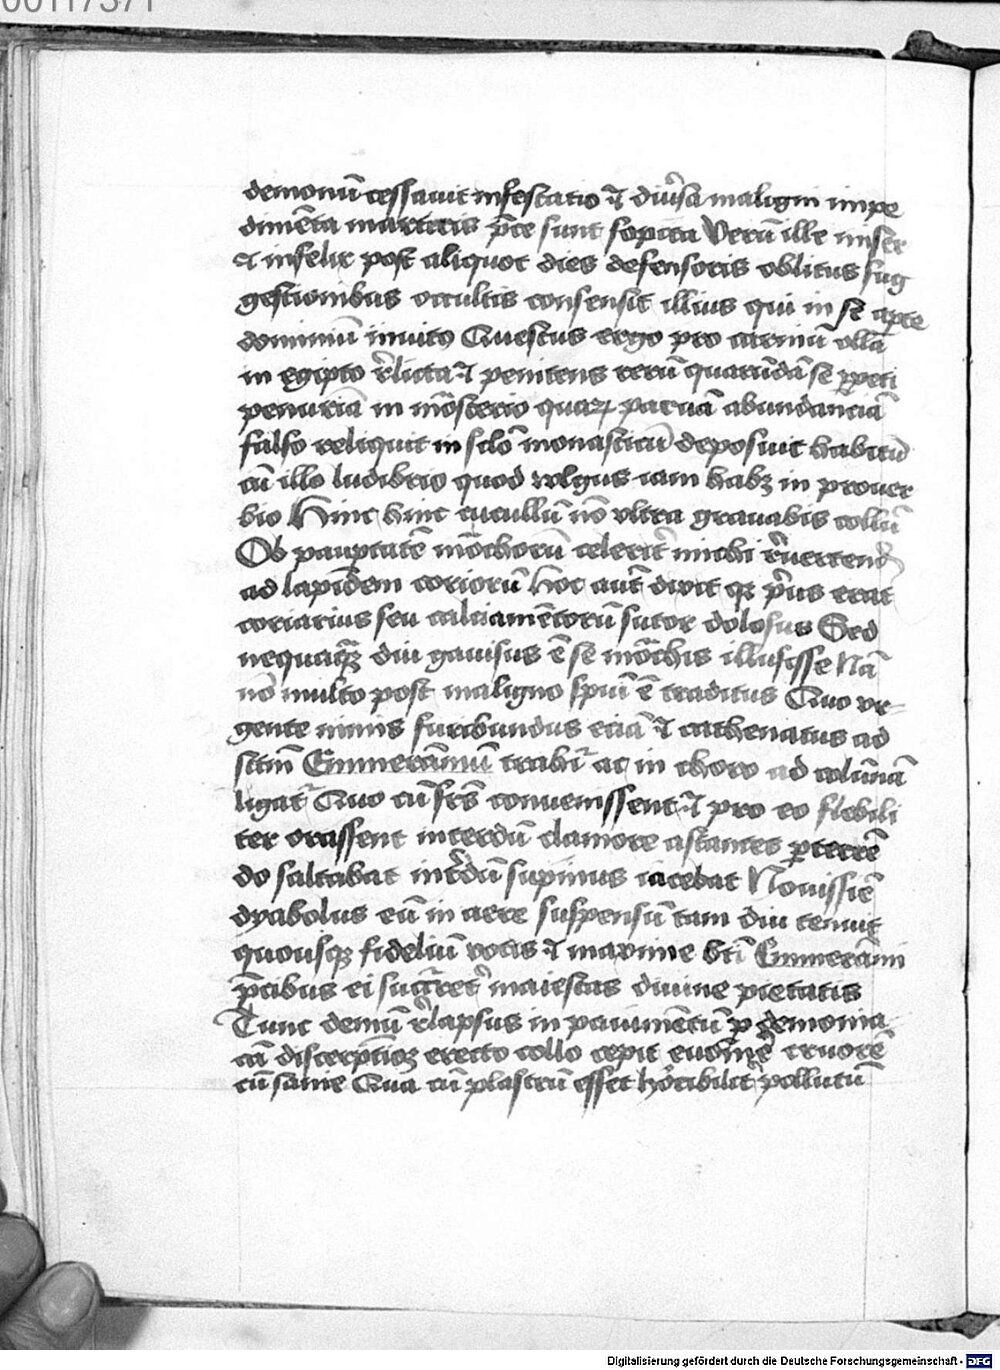 00117371
demoniū cessauit infestatio ⁊ diu̾sa maligni impe
dimēta martiris p̄ce sunt sopita Verū ille miser
⁊ infelix post aliquot dies defensoris oblitus sug
gestionibus occultis consensit illius qui in se apte
dominiū inuito Questus ergo pro carniū olla
in egipto r̄licta ⁊ penitens rerū quarūdā se ꝑpeti
penuriā in mōsterio quaꝝ paruā abundanciā
falso reliquit in sc̄lo monasticū deposuit habitū
cū illo ludibrio quod volgus iam habꝫ in prouer
bio Hinc hinc cucullū nō vltra grauabis collū
Ob pauꝑtatē mōchorū celerit̾ michi r̄uertend
ad lapidem coriorū Hoc aūt dixit qꝫ pr̄us erat
coriarius seu calciamētorū sutor dolosus Sed
nequaq̄ diu gauisus ē se mōchis illusisse Nā
nō multo post maligno spūi ē traditus Quo vr
gente nimis furibundus eciā ⁊ cathenatus ad
sctm̄ Emmerāmū trahit̾ ac in choro ad colūnā
ligat̾ Quo cū frēs conuenissent ⁊ pro eo flebili
ter orassent interdū clamore astantes ꝑterrē
do saltabat int̾dū supinus iacebat Nouissīe
dyabolus eū in aere suspensū tam diu tenuit
quousqꝫ fideliū votis ⁊ maxime bti̅ Emmerāmi
p̄cibus ei succ̾ret maiestas diuine pietatis
Tunc demū r̄lapsus in pauimētū ꝑ demonia
cā discerptioꝫ erecto collo cepit euom̾e cruorē
cū sanie Qua cū plastrū esset hor̄ibilit̾ pollutū
Digitalisierung gefördert durch die Deutsche Forschungsgemeinschaft - DFG